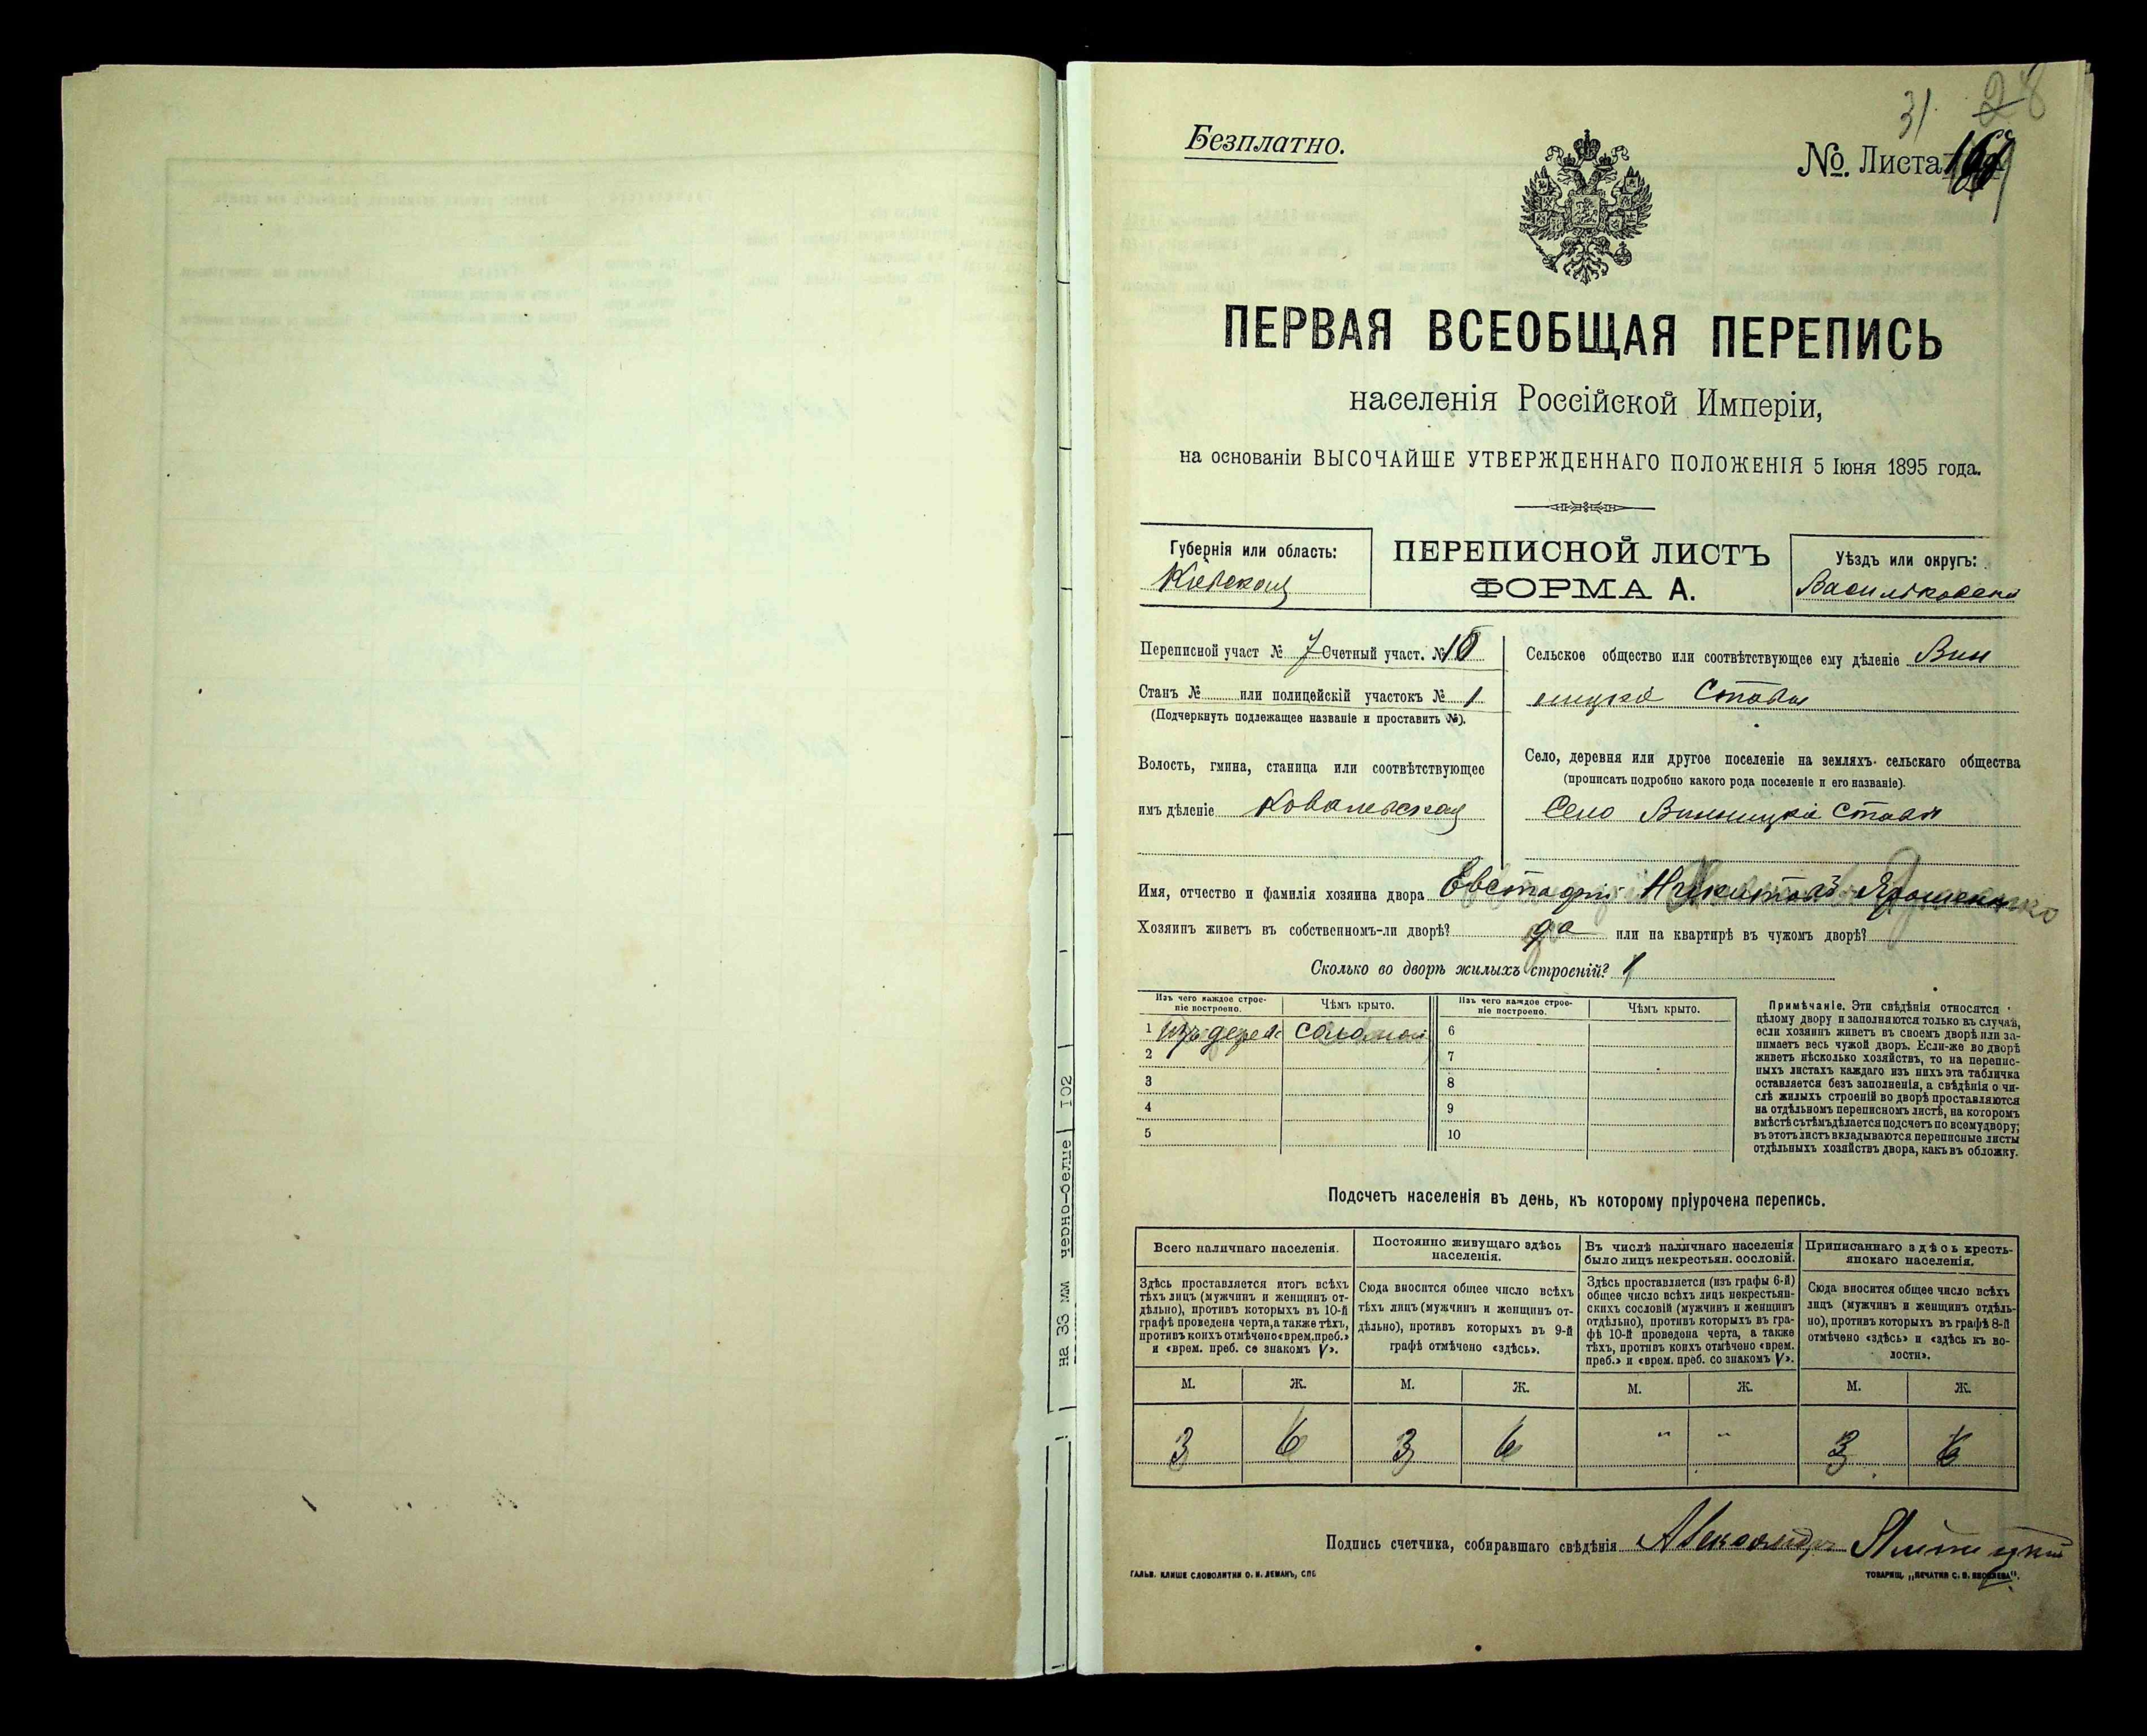 31 28
Безплатно.
№. Листа
ПЕРВАЯ ВСЕОБЩАЯ ПЕРЕПИСЬ
населенія Россійской Имперіи,
на основаніи ВЫСОЧАЙШЕ УТВЕРЖДЕННАГО ПОЛОЖЕНІЯ 5 Іюня 1895 года.
Губернія или область:
Кіевская
ПЕРЕПИСНОЙ ЛИСТЪ
ФОРМА А.
Уѣздъ или округъ:
Васильковскій
Переписной участ № 7 Счетный участ. № 10
Станъ № или полицейскій участокъ № 1
(Подчеркнуть подлежащее названіе и проставить №).
Волость, гмина, станица или соотвѣтствующее
имъ дѣленіе Ковалевская
Сельское общество или соотвѣтствующее ему дѣленіе Вин
ницкіе Ставы
Село, деревня или другое поселеніе на земляхъ сельскаго общества
(прописать подробно какого рода поселеніе и его названіе).
Село Винницкіе Ставы
Имя, отчество и фамилія хозяина двора Евстафій Никитовъ Ярошенко
Хозяинъ живетъ въ собственномъ-ли дворѣ? да или на квартирѣ въ чужомъ дворѣ?
Сколько во дворѣ жилыхъ строеній? 1
Изъ чего каждое строе-
ніе построено.
Чѣмъ крыто.
Изъ чего каждое строе-
ніе построено.
Чѣмъ крыто.
1 изъ дерев. соломой 6
2 7
3 8
4 9
5 10
Примѣчаніе. Эти свѣдѣнія относятся
цѣлому двору и заполняются только въ случаѣ,
если хозяинъ живетъ въ своемъ дворѣ или за-
нимаетъ весь чужой дворъ. Если-же во дворѣ
живетъ нѣсколько хозяйствъ, то на перепис-
ныхъ листахъ каждаго изъ нихъ эта табличка
оставляется безъ заполненія, а свѣдѣнія о чи-
слѣ жилыхъ строеній во дворѣ проставляются
на отдѣльномъ переписномъ листѣ, на которомъ
вмѣстѣ съ тѣмъ дѣлается подсчетъ по всему двору;
въ этотъ листъ вкладываются переписные листы
отдѣльныхъ хозяйствъ двора, какъ въ обложку.
Подсчетъ населенія въ день, къ которому пріурочена перепись.
Всего наличнаго населенія.
Постоянно живущаго здѣсь
населенія.
Въ числѣ наличнаго населенія
было лицъ некрестьян. сословій.
Приписаннаго здѣсь кресть-
янскаго населенія.
Здѣсь проставляется итогъ всѣхъ
тѣхъ лицъ (мужчинъ и женщинъ от-
дѣльно), противъ которыхъ въ 10-й
графѣ проведена черта, а также тѣхъ,
противъ коихъ отмѣчено «врем. преб.»
и «врем. преб. со знакомъ V».
Сюда вносится общее число всѣхъ
тѣхъ лицъ (мужчинъ и женщинъ от-
дѣльно), противъ которыхъ въ 9-й
графѣ отмѣчено «здѣсь».
Здѣсь проставляется (изъ графы 6-й)
общее число всѣхъ лицъ некрестьян-
скихъ сословій (мужчинъ и женщинъ
отдѣльно), противъ которыхъ въ гра-
фѣ 10-й проведена черта, а также
тѣхъ, противъ коихъ отмѣчено «врем.
преб.» и «врем. преб. со знакомъ V».
Сюда вносится общее число всѣхъ
лицъ (мужчинъ и женщинъ отдѣль-
но), противъ которыхъ въ графѣ 8-й
отмѣчено «здѣсь» и «здѣсь къ во-
лости».
М. Ж. М. Ж. М. Ж. М. Ж.
3 6 3 6 " " 3 6
Подпись счетчика, собиравшаго свѣдѣнія Александръ
ГАЛЬВ. КЛИШЕ СЛОВОЛИТНИ О. И. ЛЕМАНЪ, СПБ
ТОВАРИЩ. „ПЕЧАТНЯ С. П. ЯКОВЛЕВА“.
на 33 мм черно-белые 102